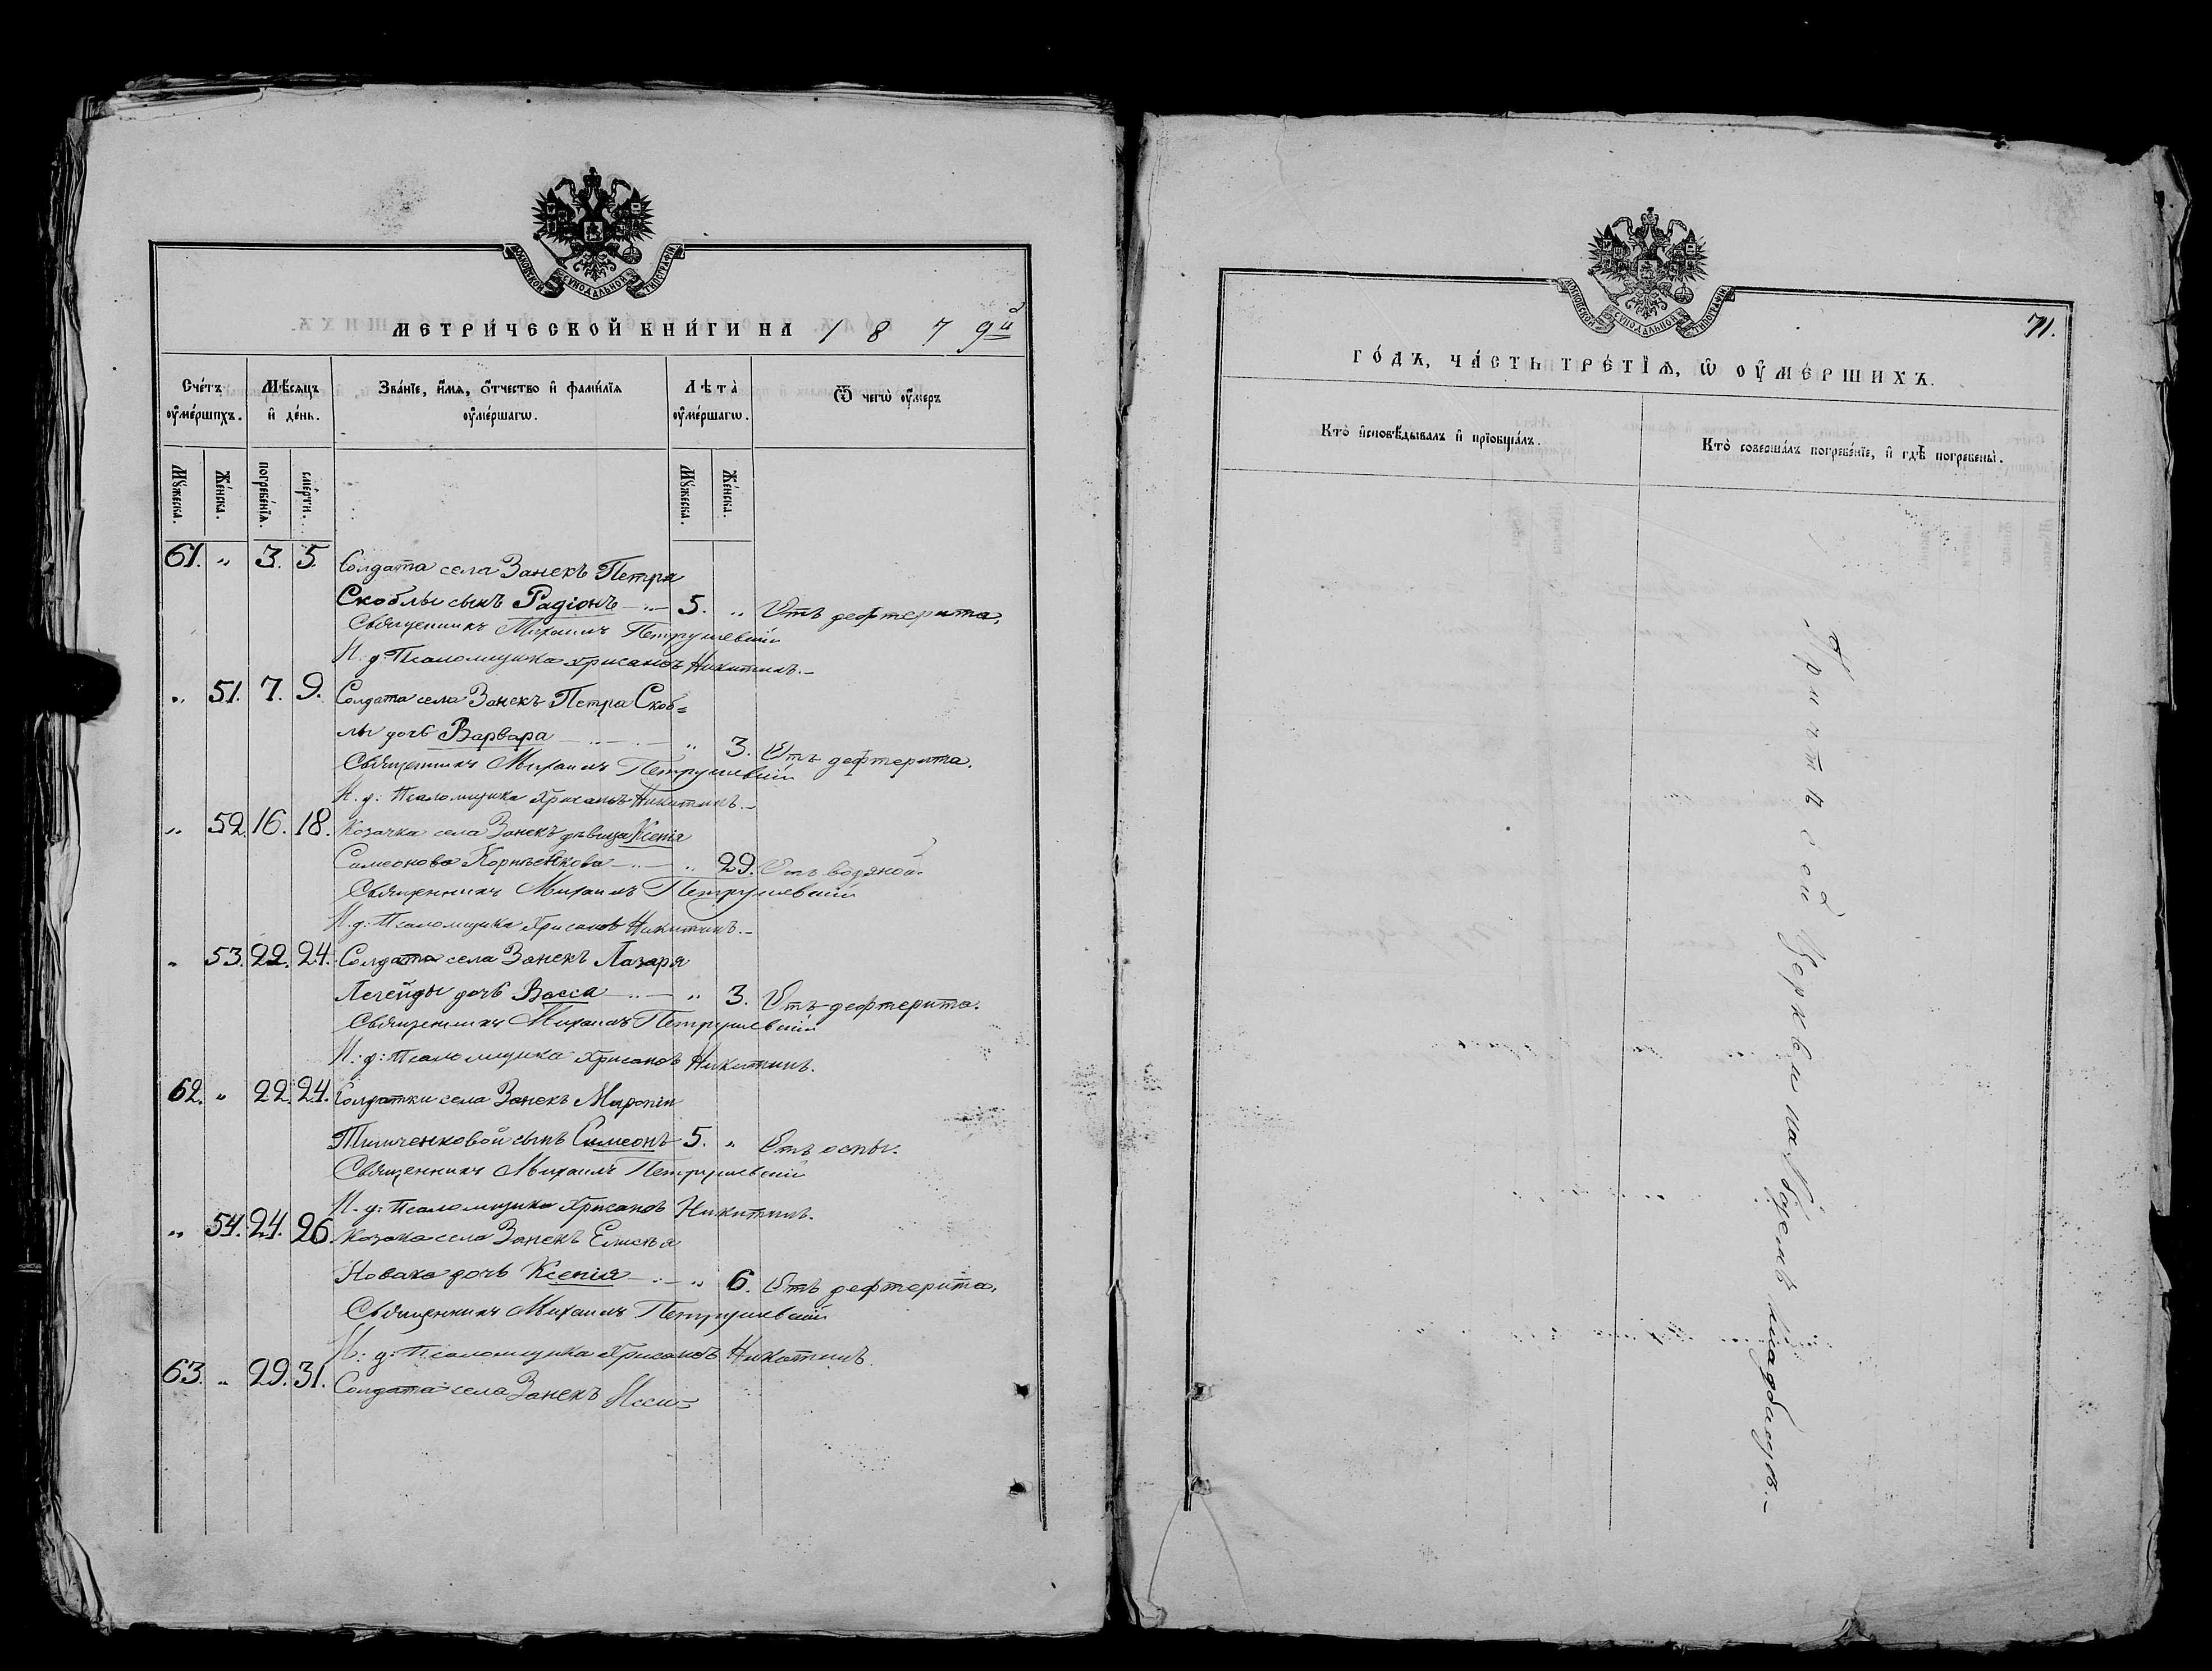 МОСКОВСКОЙ СѴНОДАЛЬНОЙ ТИПОГРАФІИ
МЕТРИ́ЧЕСКОЙ КНИ́ГИ НА 1879й
Сче́тъ ᲂу҆ме́ршихъ.
Мѣ́сяцъ и҆ де́нь.
Зва́нїе, и҆́мѧ, ѻ҆́тчество и҆ фами́лїѧ ᲂу҆ме́ршагѡ.
Лѣта̀ ᲂу҆ме́ршагѡ.
Ѿ чегѡ̀ ᲂу҆́меръ
Мꙋ́жеска.
Же́нска.
погребе́нїѧ.
сме́рти.
Мꙋ́жеска.
Же́нска.
61. „ 3. 5. Солдата села Занекъ Петра
Скоблы сынъ Радіонъ 5. „ Отъ дефтерита.
Священникъ Михаилъ Петрушевскій
И. д: Псаломщика Хрисанѳъ Никитинъ.
„ 51. 7. 9. Солдата села Занекъ Петра Скоб=
лы дочь Варвара „ 3. Отъ дефтерита.
Священникъ Михаилъ Петрушевскій
И. д: Псаломщика Хрисанѳъ Никитинъ.
„ 52. 16. 18. Козачка села Занекъ дѣвица Ксенія
Симеонова Корнѣенкова „ 29. Отъ водяной.
Священникъ Михаилъ Петрушевскій
И. д: Псаломщика Хрисанѳъ Никитинъ.
„ 53. 22. 24. Солдата села Занекъ Лазаря
Легейды дочь Васса „ 3. Отъ дефтерита.
Священникъ Михаилъ Петрушевскій
И. д: Псаломщика Хрисанѳъ Никитинъ.
62. „ 22. 24. Солдатки села Занекъ
Тимченковой сынъ Симеонъ 5. „ Отъ оспы.
Священникъ Михаилъ Петрушевскій
И. д: Псаломщика Хрисанѳъ Никитинъ.
„ 54. 24. 26. Козака села Занекъ Елисѣя
Новака дочь Ксенія „ 6. Отъ дефтерита.
Священникъ Михаилъ Петрушевскій
И. д: Псаломщика Хрисанѳъ Никитинъ.
63. „ 29. 31. Солдата села Занекъ
МОСКОВСКОЙ СѴНОДАЛЬНОЙ ТИПОГРАФІИ
71.
ГО́ДЪ, ЧА́СТЬ ТРЕ́ТЇѦ, Ѡ҆ ОУ҆МЕ́РШИХЪ.
Кто̀ и҆сповѣ́дывалъ и҆ прїобща́лъ.
Кто̀ соверша́лъ погребе́нїе, и҆ гдѣ̀ погребены̀.
Причтъ сей Церкви на кладбищѣ.